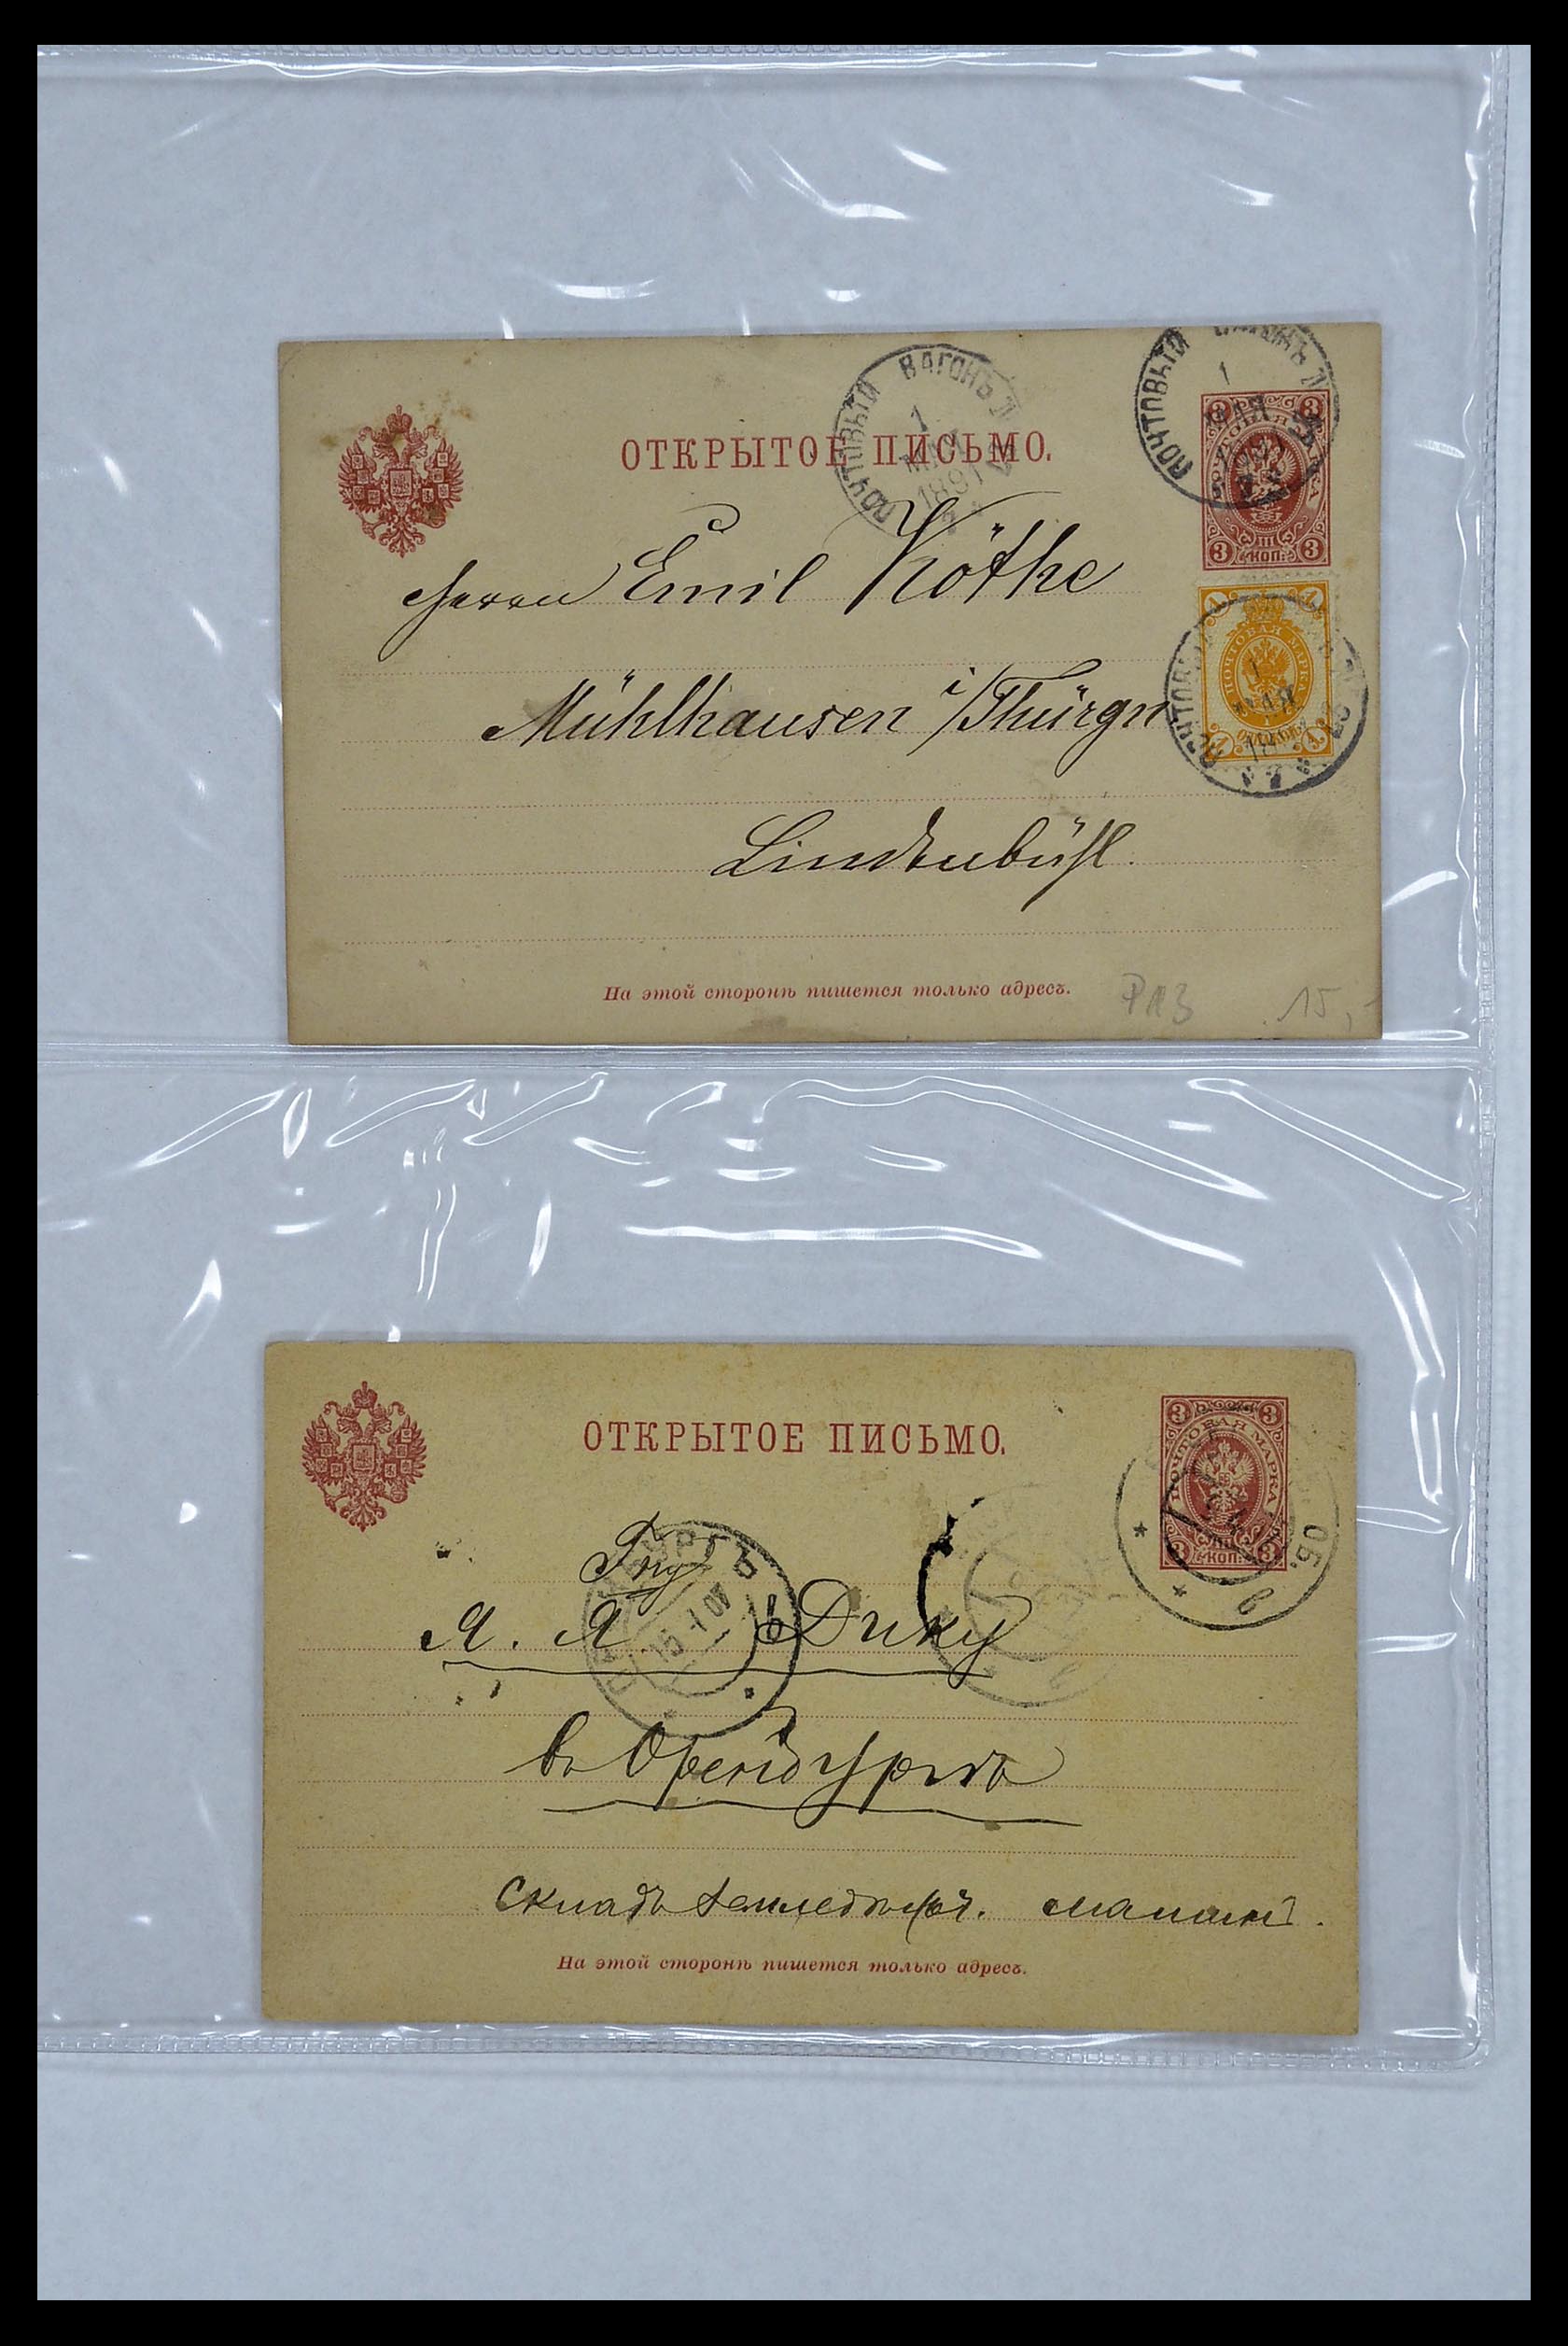 ПОЧТОВЫЙ ВАГОНЪ
1
МАЯ
1891
ПОЧТОВЫЙ ВАГОНЪ
1
МАЯ
ОТКРЫТОЕ ПИСЬМО.
3 3
ПОЧТОВАЯ МАРКА
III
3 КОП. 3
Herrn Emil Köthe
1 1
ПОЧТОВАЯ МАРКА
1
МАЯ
Mühlhausen i/Thürgn
1 1
Lindenbühl.
На этой сторонѣ пишется только адресъ.
P13 15,-
ОТКРЫТОЕ ПИСЬМО.
3 3
ПОЧТОВАЯ МАРКА
3 КОП. 3
ОБ.
в
15 1 07
в
А. А. Дику
въ Оренбургъ
Складъ земледѣльч. машинъ.
На этой сторонѣ пишется только адресъ.